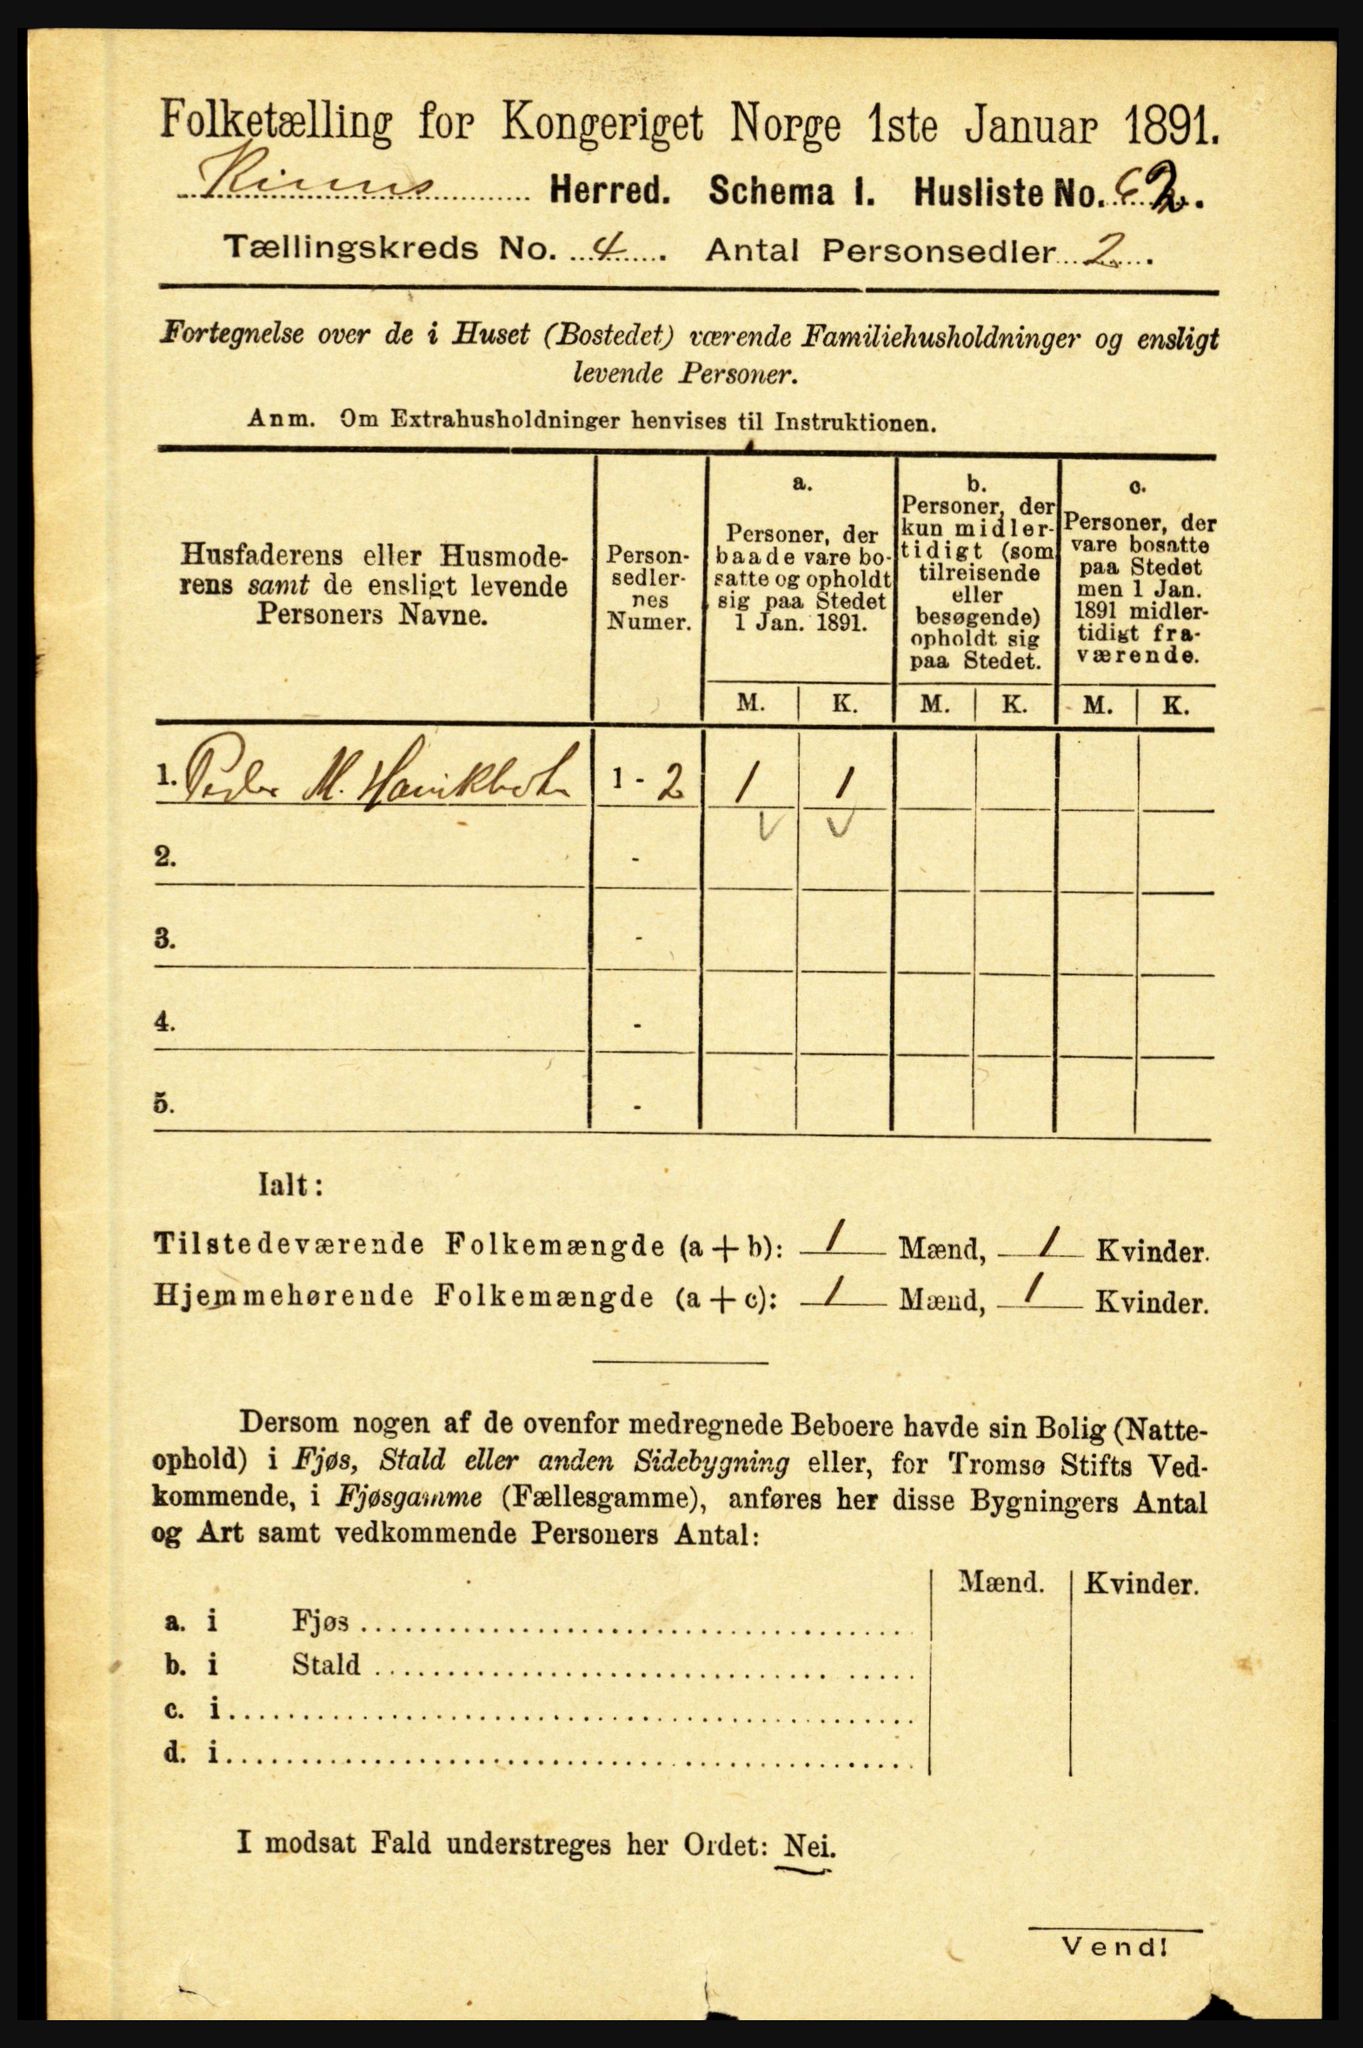 Folketælling for Kongeriget Norge 1ste Januar 1891.
Kinns Herred. Schema I. Husliste No. 62.
Tællingskreds No. 4. Antal Personsedler 2.
Fortegnelse over de i Huset (Bostedet) værende Familiehusholdninger og ensligt
levende Personer.
Anm. Om Extrahusholdninger henvises til Instruktionen.
Husfaderens eller Husmode-
rens samt de ensligt levende
Personers Navne.
Person-
sedler-
nes
Numer.
a.
Personer, der
baade vare bo-
satte og opholdt
sig paa Stedet
1 Jan. 1891.
b.
Personer, der
kun midler-
tidigt (som
tilreisende
eller
besøgende)
opholdt sig
paa Stedet.
c.
Personer, der
vare bosatte
paa Stedet
men 1 Jan.
1891 midler-
tidigt fra-
værende.
M. K. M. K. M. K.
1. Peder M. 1 - 2 1 1
2. -
3. -
4. -
5. -
Ialt:
Tilstedeværende Folkemængde (a + b): 1 Mænd, 1 Kvinder.
Hjemmehørende Folkemængde (a + c): 1 Mænd, 1 Kvinder.
Dersom nogen af de ovenfor medregnede Beboere havde sin Bolig (Natte-
ophold) i Fjøs, Stald eller anden Sidebygning eller, for Tromsø Stifts Ved-
kommende, i Fjøsgamme (Fællesgamme), anføres her disse Bygningers Antal
og Art samt vedkommende Personers Antal:
Mænd. Kvinder.
a. i Fjøs
b. i Stald
c. i
d. i
I modsat Fald understreges her Ordet: Nei.
Vend!